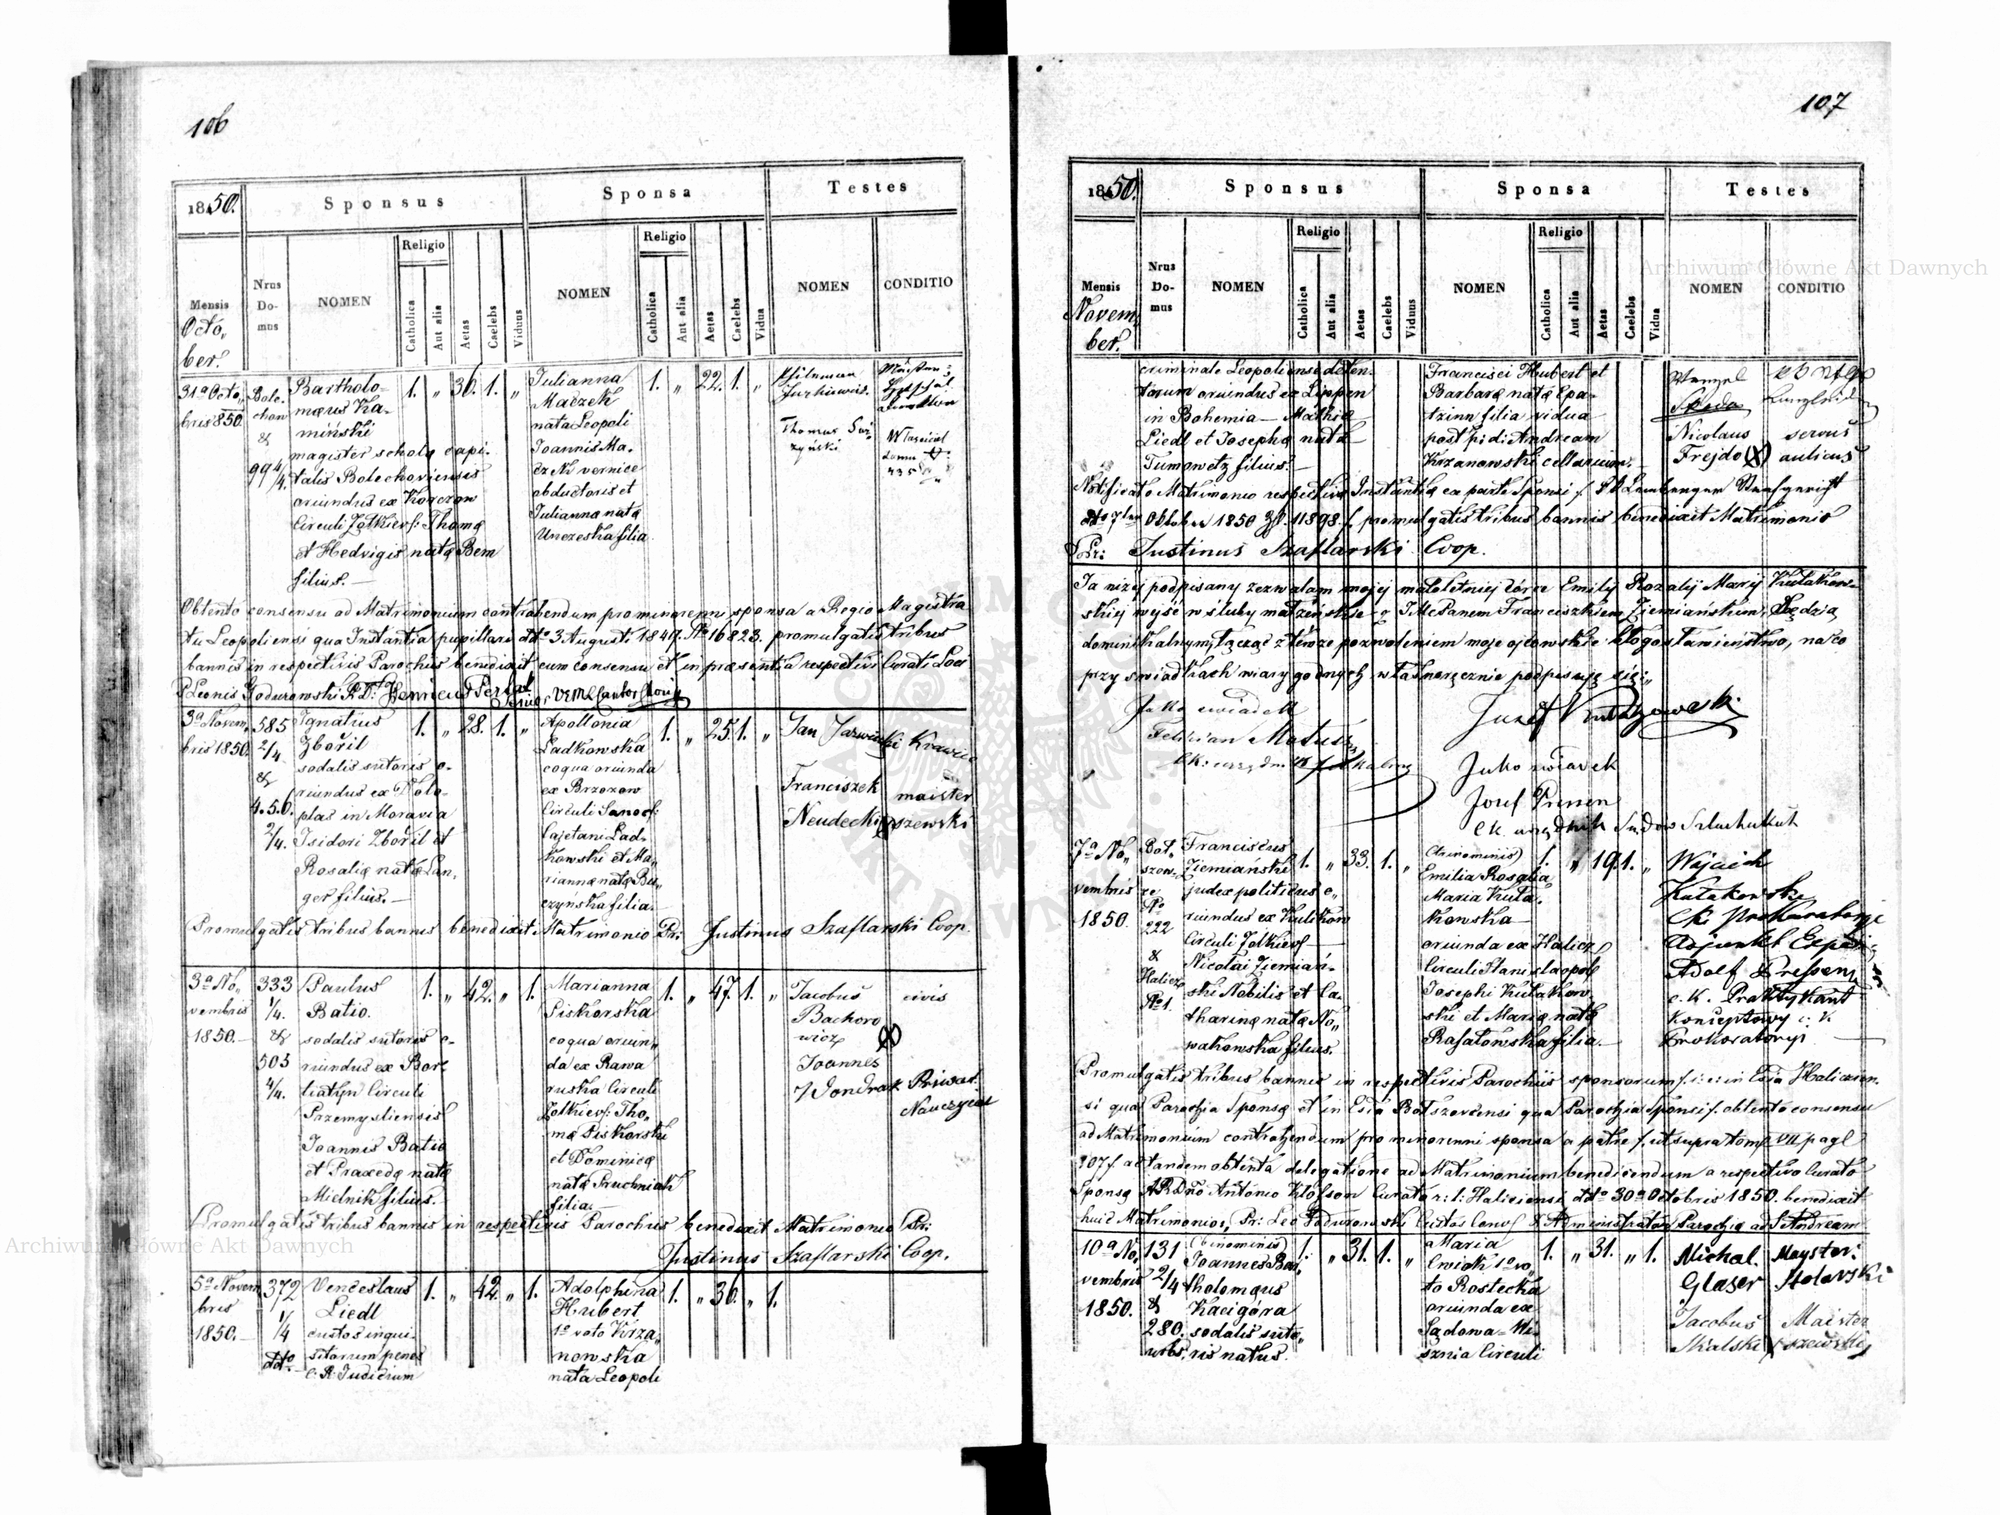 106
1850.
Sponsus
Sponsa
Testes
Mensis
Octo,
ber.
Nrus
Do-
mus
NOMEN
Religio
Catholica
Aut alia
Aetas
Caelebs
Viduus
NOMEN
Religio
Catholica
Aut alia
Aetas
Caelebs
Vidua
NOMEN
CONDITIO
31a Octo,
bris 850.
Bole
chow
&
99 4/4.
Bartholo-
mæus Ka-
miński
magister scholę capi-
talis Bolechoviensis
oriundus ex Korczow
Circuli Zołkievs: Thomę
et Hedvigis natę Bem
filius.—
1. „ 36. 1. „
Julianna
Maczek
nata Leopoli
Joannis Ma-
czek vernice
obductoris et
Juliannę natę
filia
1. „ 22. 1. „
Thomas
Obtento consensu ad Matrimonium contrahendum pro minorenni sponsa a Regio Magistra
tu Leopoliensi qua Instantia pupillari ddto 3. Augusti 1847. No 16823. promulgatis tribus
bannis in respectivis Parochiis benedixit cum consensu et in præsentia respectivi Curati Loci
P. Leonis Godurowski
3a Novem,
bris 1850.
585
2/4
&
4.5.0.
2/4.
Ignatius
Zbořil
sodalis sutoris o-
riundus ex Dolo-
plas in Moravia
Isidori Zbořil et
Rosalię natę Lan,
ger filius.—
1. „ 28. 1. „
Apollonia
Ladkowska
coqua oriunda
ex Brzozow
Circuli Sanoc:
Cajetani Lad-
kowski et Ma-
riannę natę Bu-
czyńska filia.
1. „ 25. 1. „
Jan
Krawiec
Franciszek
Neudecki
maister
szewski
Promulgatis tribus bannis benedixit Matrimonio Pr: Justinus Szaflarski Coop.
3a No,
vembris
1850.—
333
1/4.
&
503
4/4.
Paulus
Batio.
sodalis sutoris o-
riundus ex Bor-
tiatyn Circuli
Przemysliensis
Joannis Batio
et Praxedę natę
Mielnik filius.
1. „ 42. „ 1.
Marianna
Piskorska
coqua oriun,
da ex Rawa
ruska Circuli
Zołkievs: Tho,
mę Piskorski
et Dominicę
natę Pruchniak
filia.—
1. „ 47. 1. „
Jacobus
Bachoro
wicz
civis
Joannes
Wondrak
Priwat.
Nauczyciel
Promulgatis tribus bannis in respectivis Parochiis benedixit Matrimonio Pr:
Justinus Szaflarski Coop.
5a Novem
bris
1850.—
372
1/4
ddto
Venceslaus
Liedl
custos inqui-
sitorum penes
C. R. Judicium
1. „ 42. „ 1.
Adolphina
Hubert
1o voto Krza,
nowska
nata Leopoli
1. „ 36. „ 1.
107
1850.
Sponsus
Sponsa
Testes
Mensis
Novem,
ber.
Nrus
Do-
mus
NOMEN
Religio
Catholica
Aut alia
Aetas
Caelebs
Viduus
NOMEN
Religio
Catholica
Aut alia
Aetas
Caelebs
Vidua
NOMEN
CONDITIO
criminale Leopoliense deten-
torum oriundus ex Lippen
in Bohemia — Mathię
Liedl et Josephę natę
Tumowetz filius.—
Francisci Hubert et
Barbarę natę Epa-
trinn filia vidua
post p: d: Andream
Krzanowski cellarium.—
Wenzel
Skoda
Nicolaus
Frejdo
servus
aulicus
Notificato Matrimonio respectivę Instantię ex parte Sponsi /: kk Lemberger Strafgericht
ddto 7ten Oktober 1850 Zl. 11898 /: promulgatis tribus bannis benedixit Matrimonio
Pr: Justinus Szaflarski Coop.
Ja niżej podpisany zezwalam mojej małoletniej córce Emilij Rozalij Marij Kułakow-
skiej wejść w śluby małżeńskie z JMcPanem Franciszkiem Ziemiańskim, Sędzią
dominikalnym, łącząc z téwże pozwoleniem moje ojcowskie błogosławieństwo, na co
przy świadkach wiary godnych własnoręcznie podpisuję się:,
Jako świadek
Józef Kułakowski.
Jako świadek
Josef Pressen
Ck. urzędnik Sądow Szlacheckich
7a No,
vembris
1850.
Bot,
szow,
ce
No
222
&
Halicz
No 1.
Franciscus
Ziemiański
judex politicus o,
riundus ex Kulikow
Circuli Zołkievs
Nicolai Ziemiań-
ski Nobilis et Ca,
tharinę natę No,
wakowska filius.
1. „ 33. 1. „
(trinominis)
Emilia Rosalia
Maria Kuła,
kowska
oriunda ex Halicz
Circuli Stanislaopol
Josephi Kułakow
ski et Marię natę
Rafałowska filia.—
1. „ 19. 1. „
Wojciech
Kułakowski
Ck. Prokuratorji
Adjunkt
Adolf Pressen
c. K. Praktykant
Konceptowy c: K
Prokuratoryi
Promulgatis tribus bannis in respectivis Parochiis sponsorum /: i: e: in Ecsia Haliczien.
si qua Parochia Sponsę et in Ecsia Botszovcensi qua Parochia Sponsi /: obtento consensu
ad Matrimonium contrahendum pro minorenni sponsa a patre /: ut supra tom. VII. pag
107 /: ac tandem obtenta delegatione ad Matrimonium benedicendum a respectivo Curato
Sponsę Antonio Curato r: l: Haliciensi ddto 30a Octobris 1850. benedixit
huic Matrimonio, Pr: Leo Godurowski Custos Conv: & Administrator Parochię ad S. Andream
10a No,
vembris
1850.
131
2/4
&
280.
urbs.
(binominis)
Joannes Bar,
tholomęus
Kacigora
sodalis suto,
ris natus
1. „ 31. 1. „
Maria
Cwiok 1o vo,
to Rostecka
oriunda ex
Sądowa-Wi-
sznia Circuli
1. „ 31. „ 1.
Michal.
Glaser
Mayster.
Stolarski
Jacobus
Skalski
Maister
szewski
Archiwum Główne Akt Dawnych
Archiwum Główne Akt Dawnych